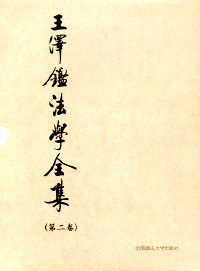 王澤鑑法學全集
(第二卷)
中国政法大学出版社